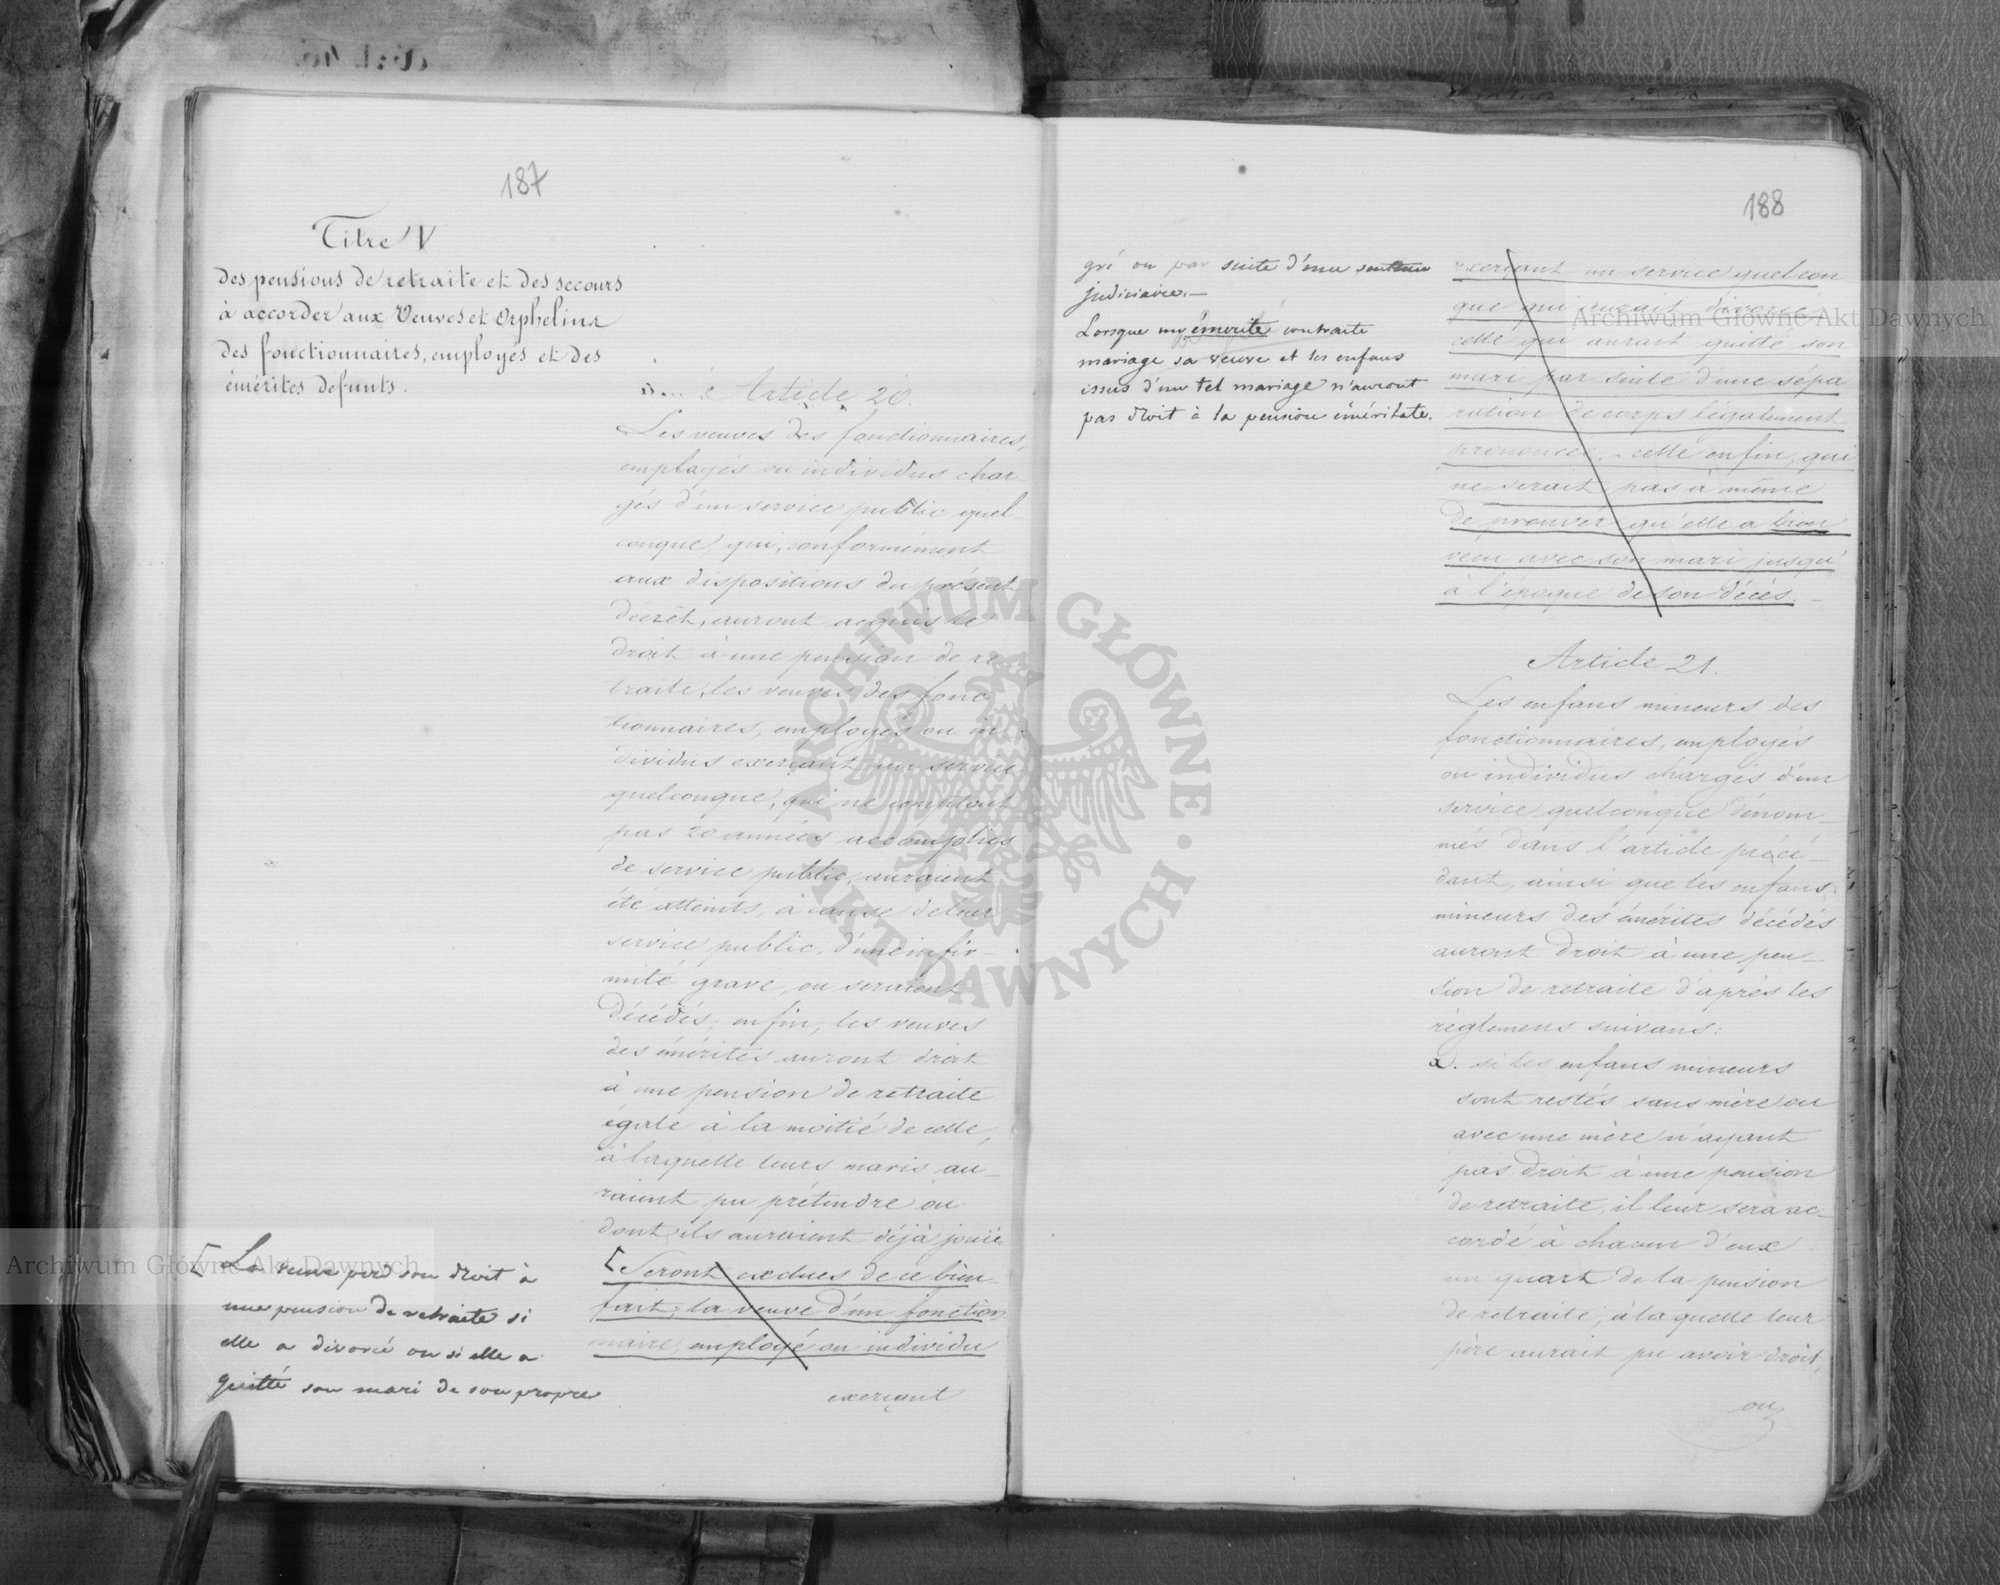 187
Titre V
des pensions de retraite et des secours
à accorder aux Veuves et Orphelins
des fonctionnaires, employés et des
émérites defunts.
Article 20.
Les veuves des fonctionnaires,
employés ou individus char
gés d'un service public quel
conque, qui, conformément
aux dispositions du présent
décrêt, auront acquis le
droit à une pension de re
traite, les veuves des fonc
tionnaires, employés ou in
dividus exerçant un service
quelconque, qui ne comptant
pas 20 années accomplies
de service public, auraient
été atteints, à cause de leur
service public, d'une infir-
mité grave, ou seraient
décédés; enfin, les veuves
des émérites auront droit
à une pension de retraite
égale à la moitié de celle,
à laquelle leurs maris au-
raient pu prétendre ou
dont ils auraient déjà jouie.
[Seront exclues de ce bien-
fait; la veuve d'un fonction
naire, employé ou individu
exerçant
[La veuve perd son droit à
une pension de retraite si
elle a divorcé ou si elle a
quitté son mari de son propre
188
gré ou par suite d'une sentence
judiciaire.—
Lorsque un émerite contracte
mariage sa veuve et les enfans
issus d'un tel mariage n'auront
pas droit à la pension éméritale.
exerçant un service quelcon
que qui aurait divorcé
celle qui aurait quitté son
mari par suite d'une sépa
ration de corps légalement
prononcée, - celle enfin, qui
ne serait pas à même
de prouver qu'elle a bien
vécu avec son mari jusqu'
à l'époque de son décès. –
Article 21.
Les enfans mineurs des
fonctionnaires, employés
ou individus chargés d'un
service quelconque dénom-
més dans l'article précé-
dant, ainsi que les enfans
mineurs des émérites décédés
auront droit à une pen-
sion de retraite d'après les
règlemens suivans:
a. si les enfans mineurs
sont restés sans mère ou
avec une mère n'ayant
pas droit à une pension
de retraite, il leur sera ac-
cordé à chacun d'eux
un quart de la pension
de retraite, à laquelle leur
père aurait pu avoir droit,
ou
Archiwum Główne Akt Dawnych
Archiwum Główne Akt Dawnych
ARCHIWUM GŁÓWNE AKT DAWNYCH